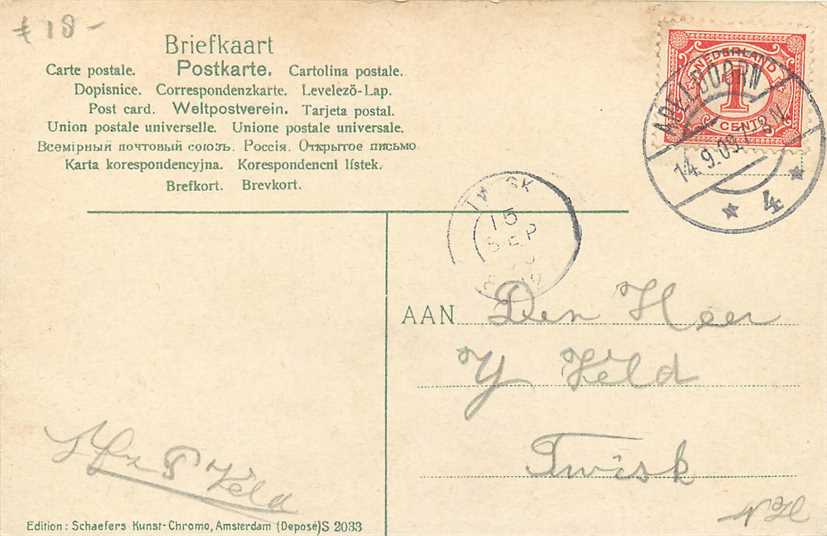 € 18-
Briefkaart
Carte postale. Postkarte. Cartolina postale.
Dopisnice. Correspondenzkarte. Levelezõ-Lap.
Post card. Weltpostverein. Tarjeta postal.
Union postale universelle. Unione postale universale.
Всемірный почтовый союзъ. Россія. Открытое письмо.
Karta korespondencyjna. Korespondencni lístek.
Brefkort. Brevkort.
NEDERLAND
1
CENT
APELDOORN
14.9.09.
4
TWISK
15
SEP
AAN Den Heer
Y Veld
Twisk
NH
P Veld
Edition: Schaefers Kunst-Chromo, Amsterdam (Deposé) S 2033